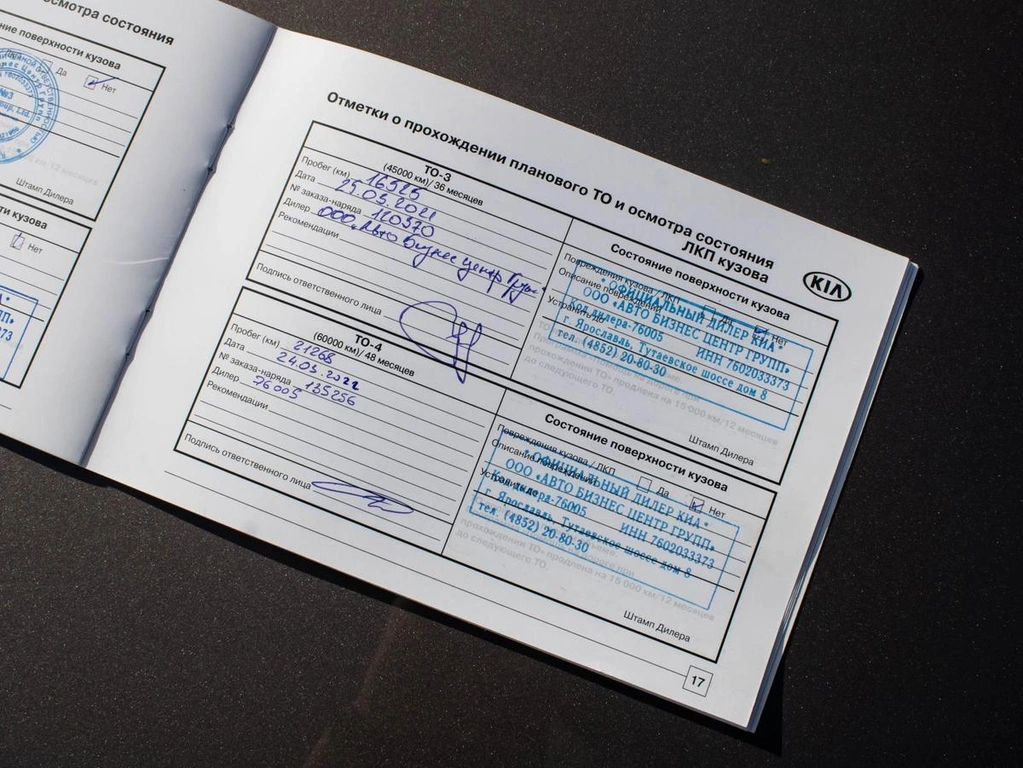 осмотра состояния
ние поверхности кузова
Да
Нет
№3
Штамп Дилера
сти кузова
Нет
Отметки о прохождении планового ТО и осмотра состояния
ЛКП кузова
KIA
ТО-3
(45000 км)/ 36 месяцев
Пробег (км) 16525
Дата 25.03.2021
№ заказа-наряда 120570
Дилер ООО "Авто Бизнес центр Групп"
Рекомендации
Подпись ответственного лица
Состояние поверхности кузова
Повреждения кузова / ЛКП
Нет
Описание повреждений
Устранить до
* ОФИЦИАЛЬНЫЙ ДИЛЕР КИА *
ООО «АВТО БИЗНЕС ЦЕНТР ГРУПП»
Код дилера-76005 ИНН 7602033373
г. Ярославль, Тутаевское шоссе дом 8
тел. (4852) 20-80-30
прохождении ТО» продлена на 15 000 км/12 месяцев
до следующего ТО.
Штамп Дилера
ТО-4
(60000 км)/ 48 месяцев
Пробег (км) 21268
Дата 24.03.2022
№ заказа-наряда 135256
Дилер 76005
Рекомендации
Подпись ответственного лица
Состояние поверхности кузова
Повреждения кузова / ЛКП
Да Нет
Описание повреждений
* ОФИЦИАЛЬНЫЙ ДИЛЕР КИА *
ООО «АВТО БИЗНЕС ЦЕНТР ГРУПП»
Код дилера-76005 ИНН 7602033373
г. Ярославль, Тутаевское шоссе дом 8
тел. (4852) 20-80-30
прохождении ТО» продлена на 15 000 км/12 месяцев
до следующего ТО.
Штамп Дилера
17